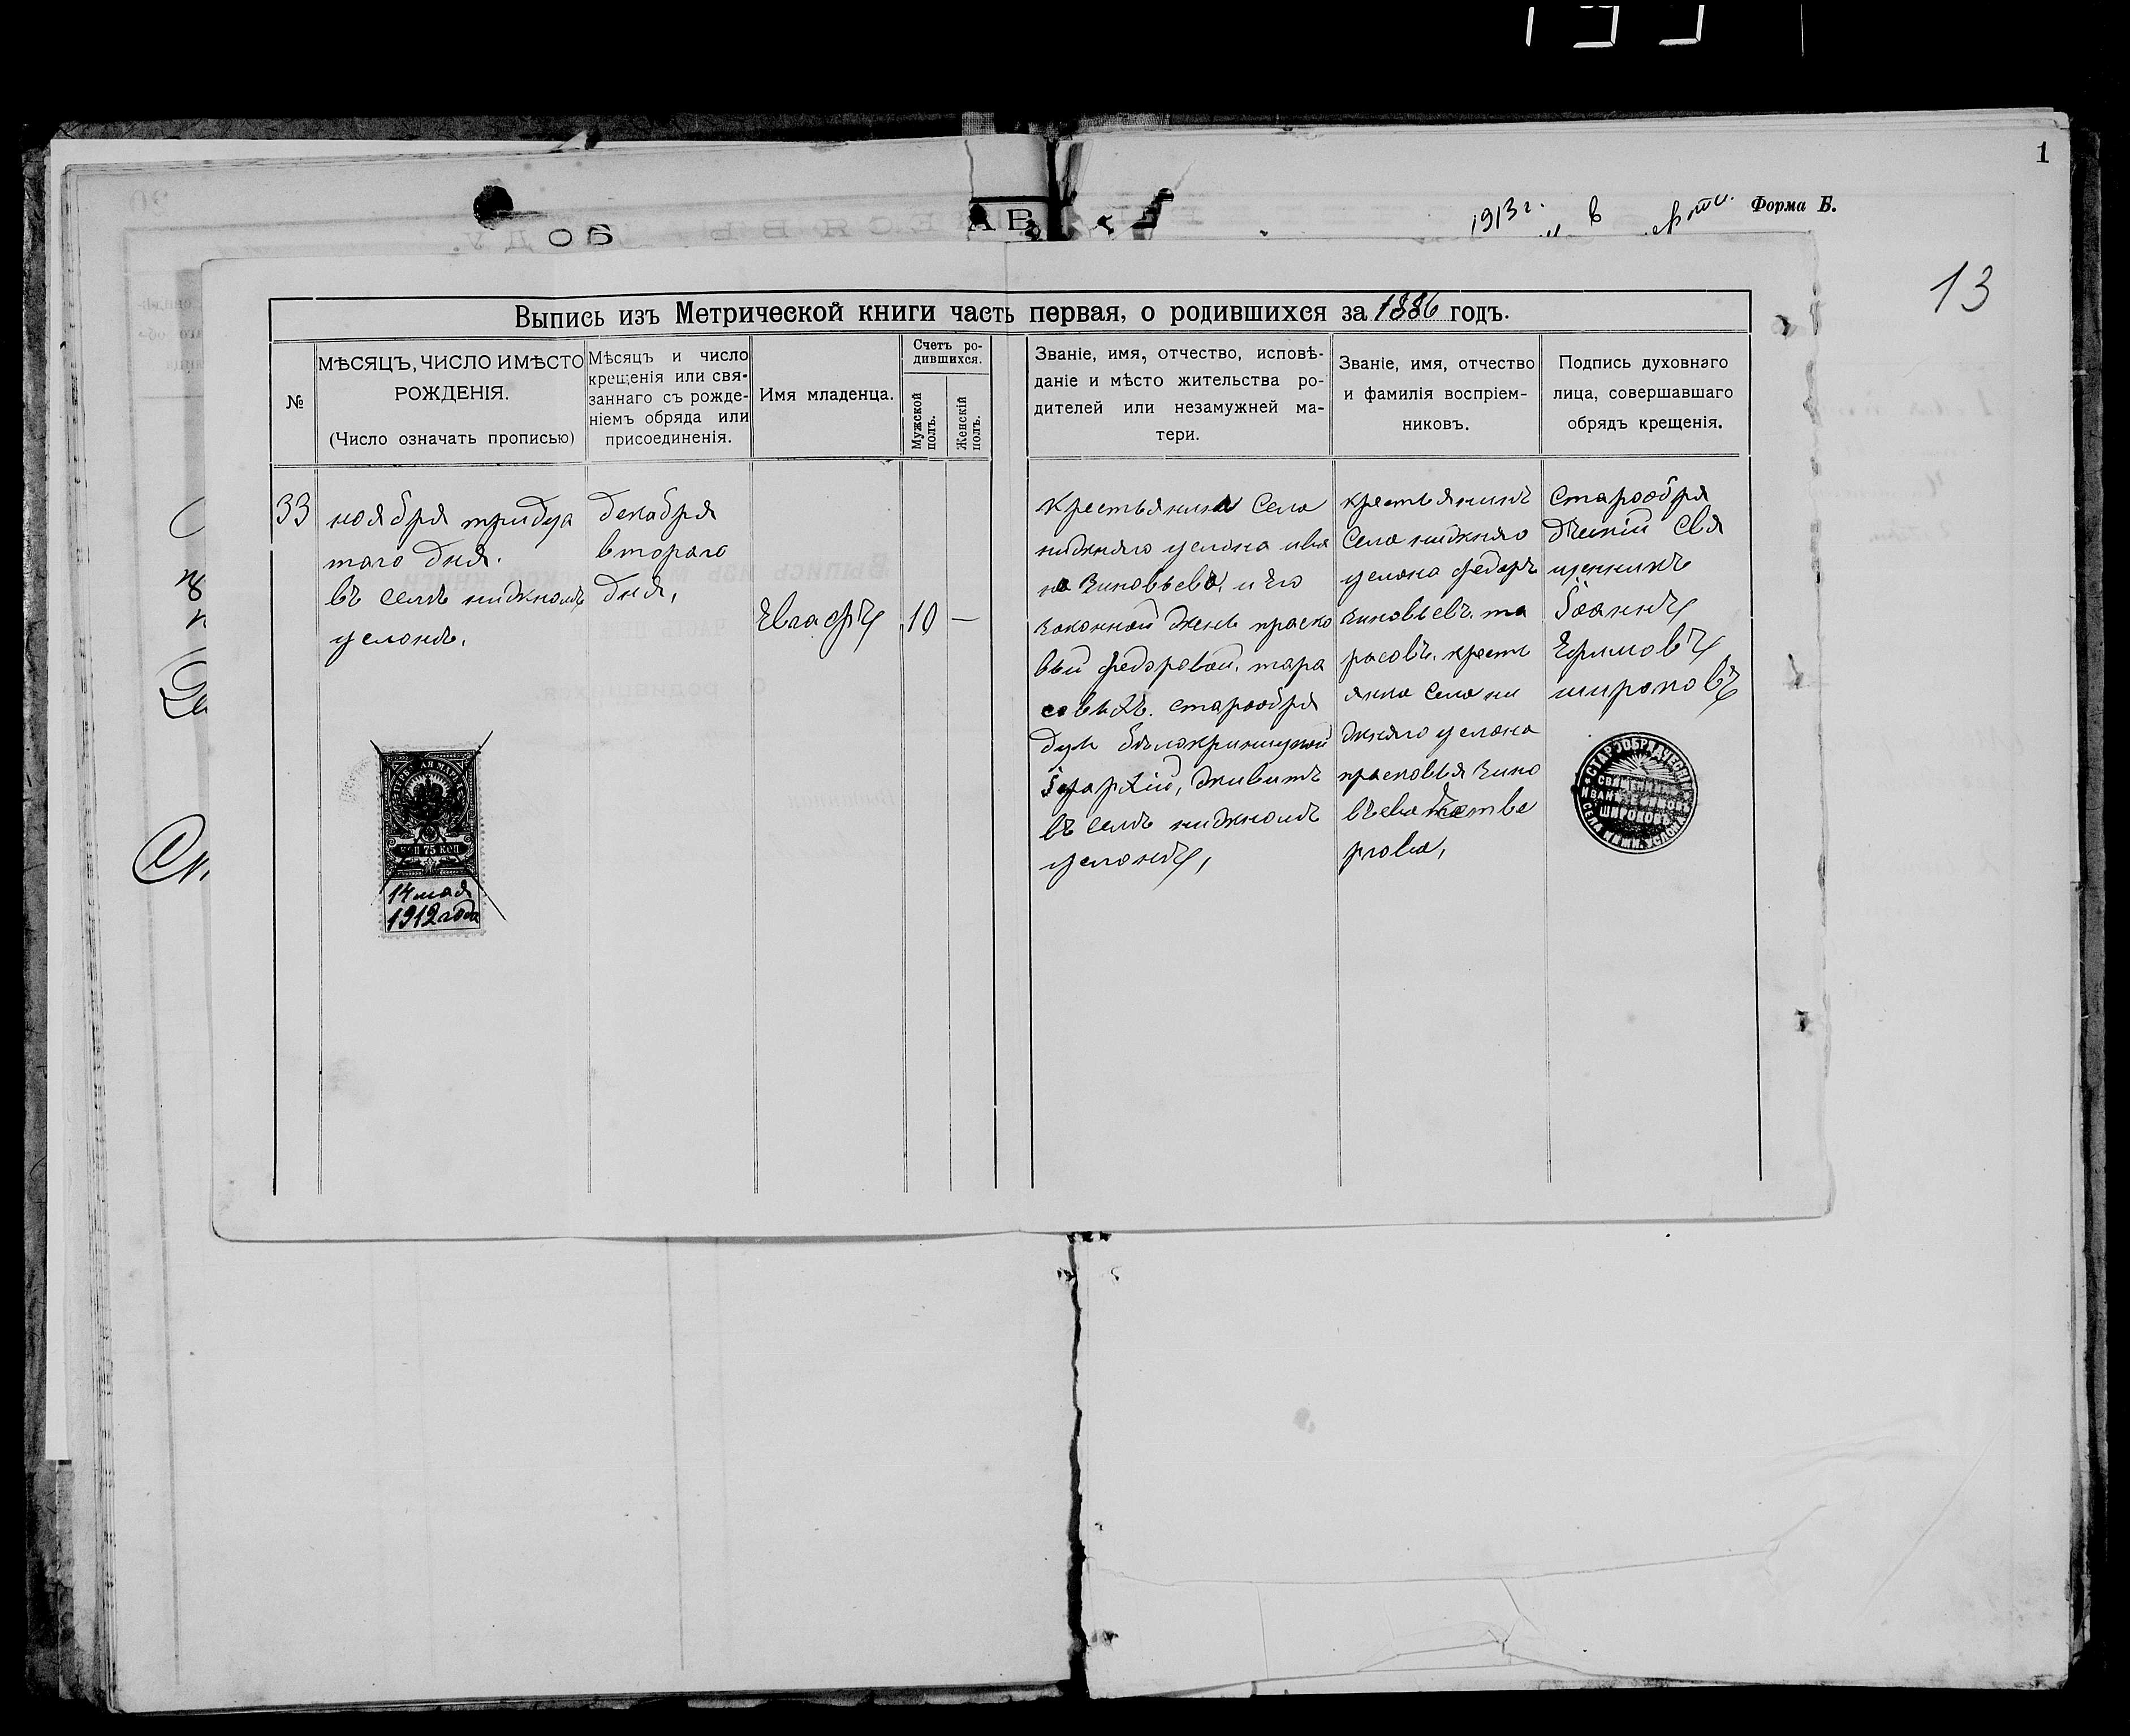 1
1913 г.
Форма Б.
13
Выпись изъ Метрической книги часть первая, о родившихся за 1886 годъ.
№
МѢСЯЦЪ, ЧИСЛО И МѢСТО
РОЖДЕНІЯ.
(Число означать прописью)
Мѣсяцъ и число
крещенія или свя-
заннаго съ рожде-
ніемъ обряда или
присоединенія.
Имя младенца.
Счетъ ро-
дившихся.
Мужской
полъ.
Женскій
полъ.
Званіе, имя, отчество, исповѣ-
даніе и мѣсто жительства ро-
дителей или незамужней ма-
тери.
Званіе, имя, отчество
и фамилія воспріем-
никовъ.
Подпись духовнаго
лица, совершавшаго
обрядъ крещенія.
33
ноября тридца
таго дня.
въ селѣ нижномъ
услонѣ.
Декабря
втораго
дня,
Евлафъ
10
—
крестьянина села
нижняго услона ива
на Зиновьева. и его
законной жены праско
вьи федоровой. тара
совыхъ. старообря
дцы бѣлокриницкой
іерархіи, живутъ
въ селѣ нижномъ
услонѣ,
крестьянинъ
села нижняго
услона федоръ
зиновьевъ. та
расовъ. кресть
янка села ни
жняго услона
прасковья Зино
вьева
Старообря
дческій свя
щенникъ
Іоаннъ
Ефимовъ
широковъ
КОП 75 КОП
14 мая
1912 года
СТАРООБРЯДЧЕСКІЙ
СВЯЩЕННИКЪ
ИВАНЪ ЕФИМОВЪ
ШИРОКОВЪ
СЕЛА НИЖН. УСЛОНА